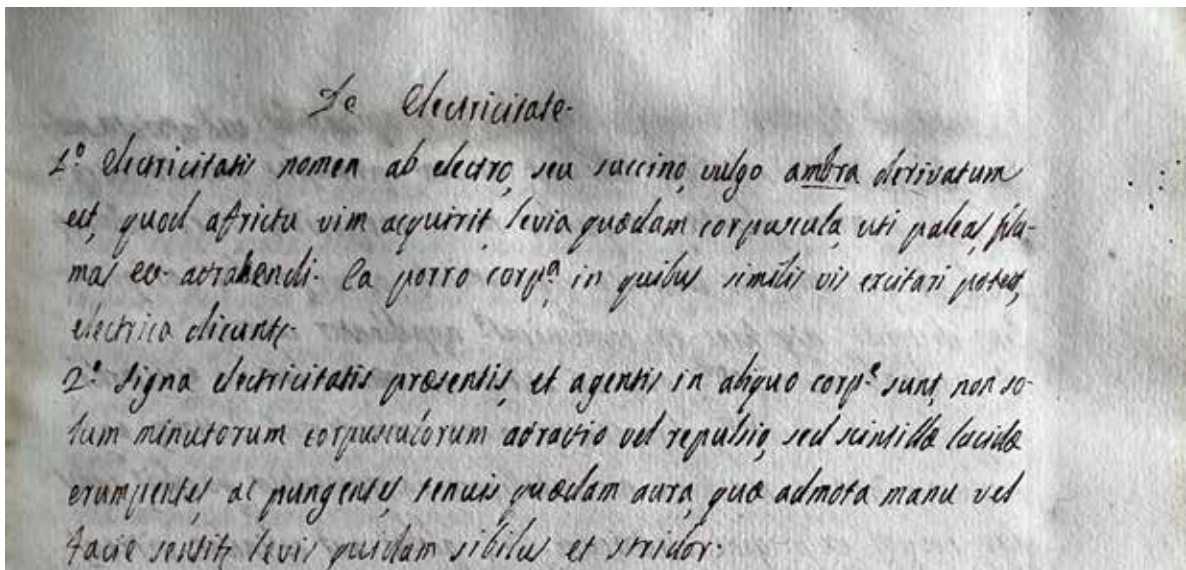 De Electricitate.
1º Electricitatis nomen ab electro, seu succino, vulgo ambra derivatum
est, quod africtu vim acquirit levia quædam corpuscula, uti paleas, plu-
mas atrahendi. Ea porro corpª in quibus similis vis excitari potest,
electrica dicunt
2º Signa electricitatis præsentis, et agentis in aliquo corpe sunt, non so-
lum minutorum corpusculorum atractio vel repulsio, sed scintillæ lucidæ
erumpentes, ac pungentes, tenuis quædam aura, quæ admota manu vel
facie sentit levis quidam sibilus et stridor.